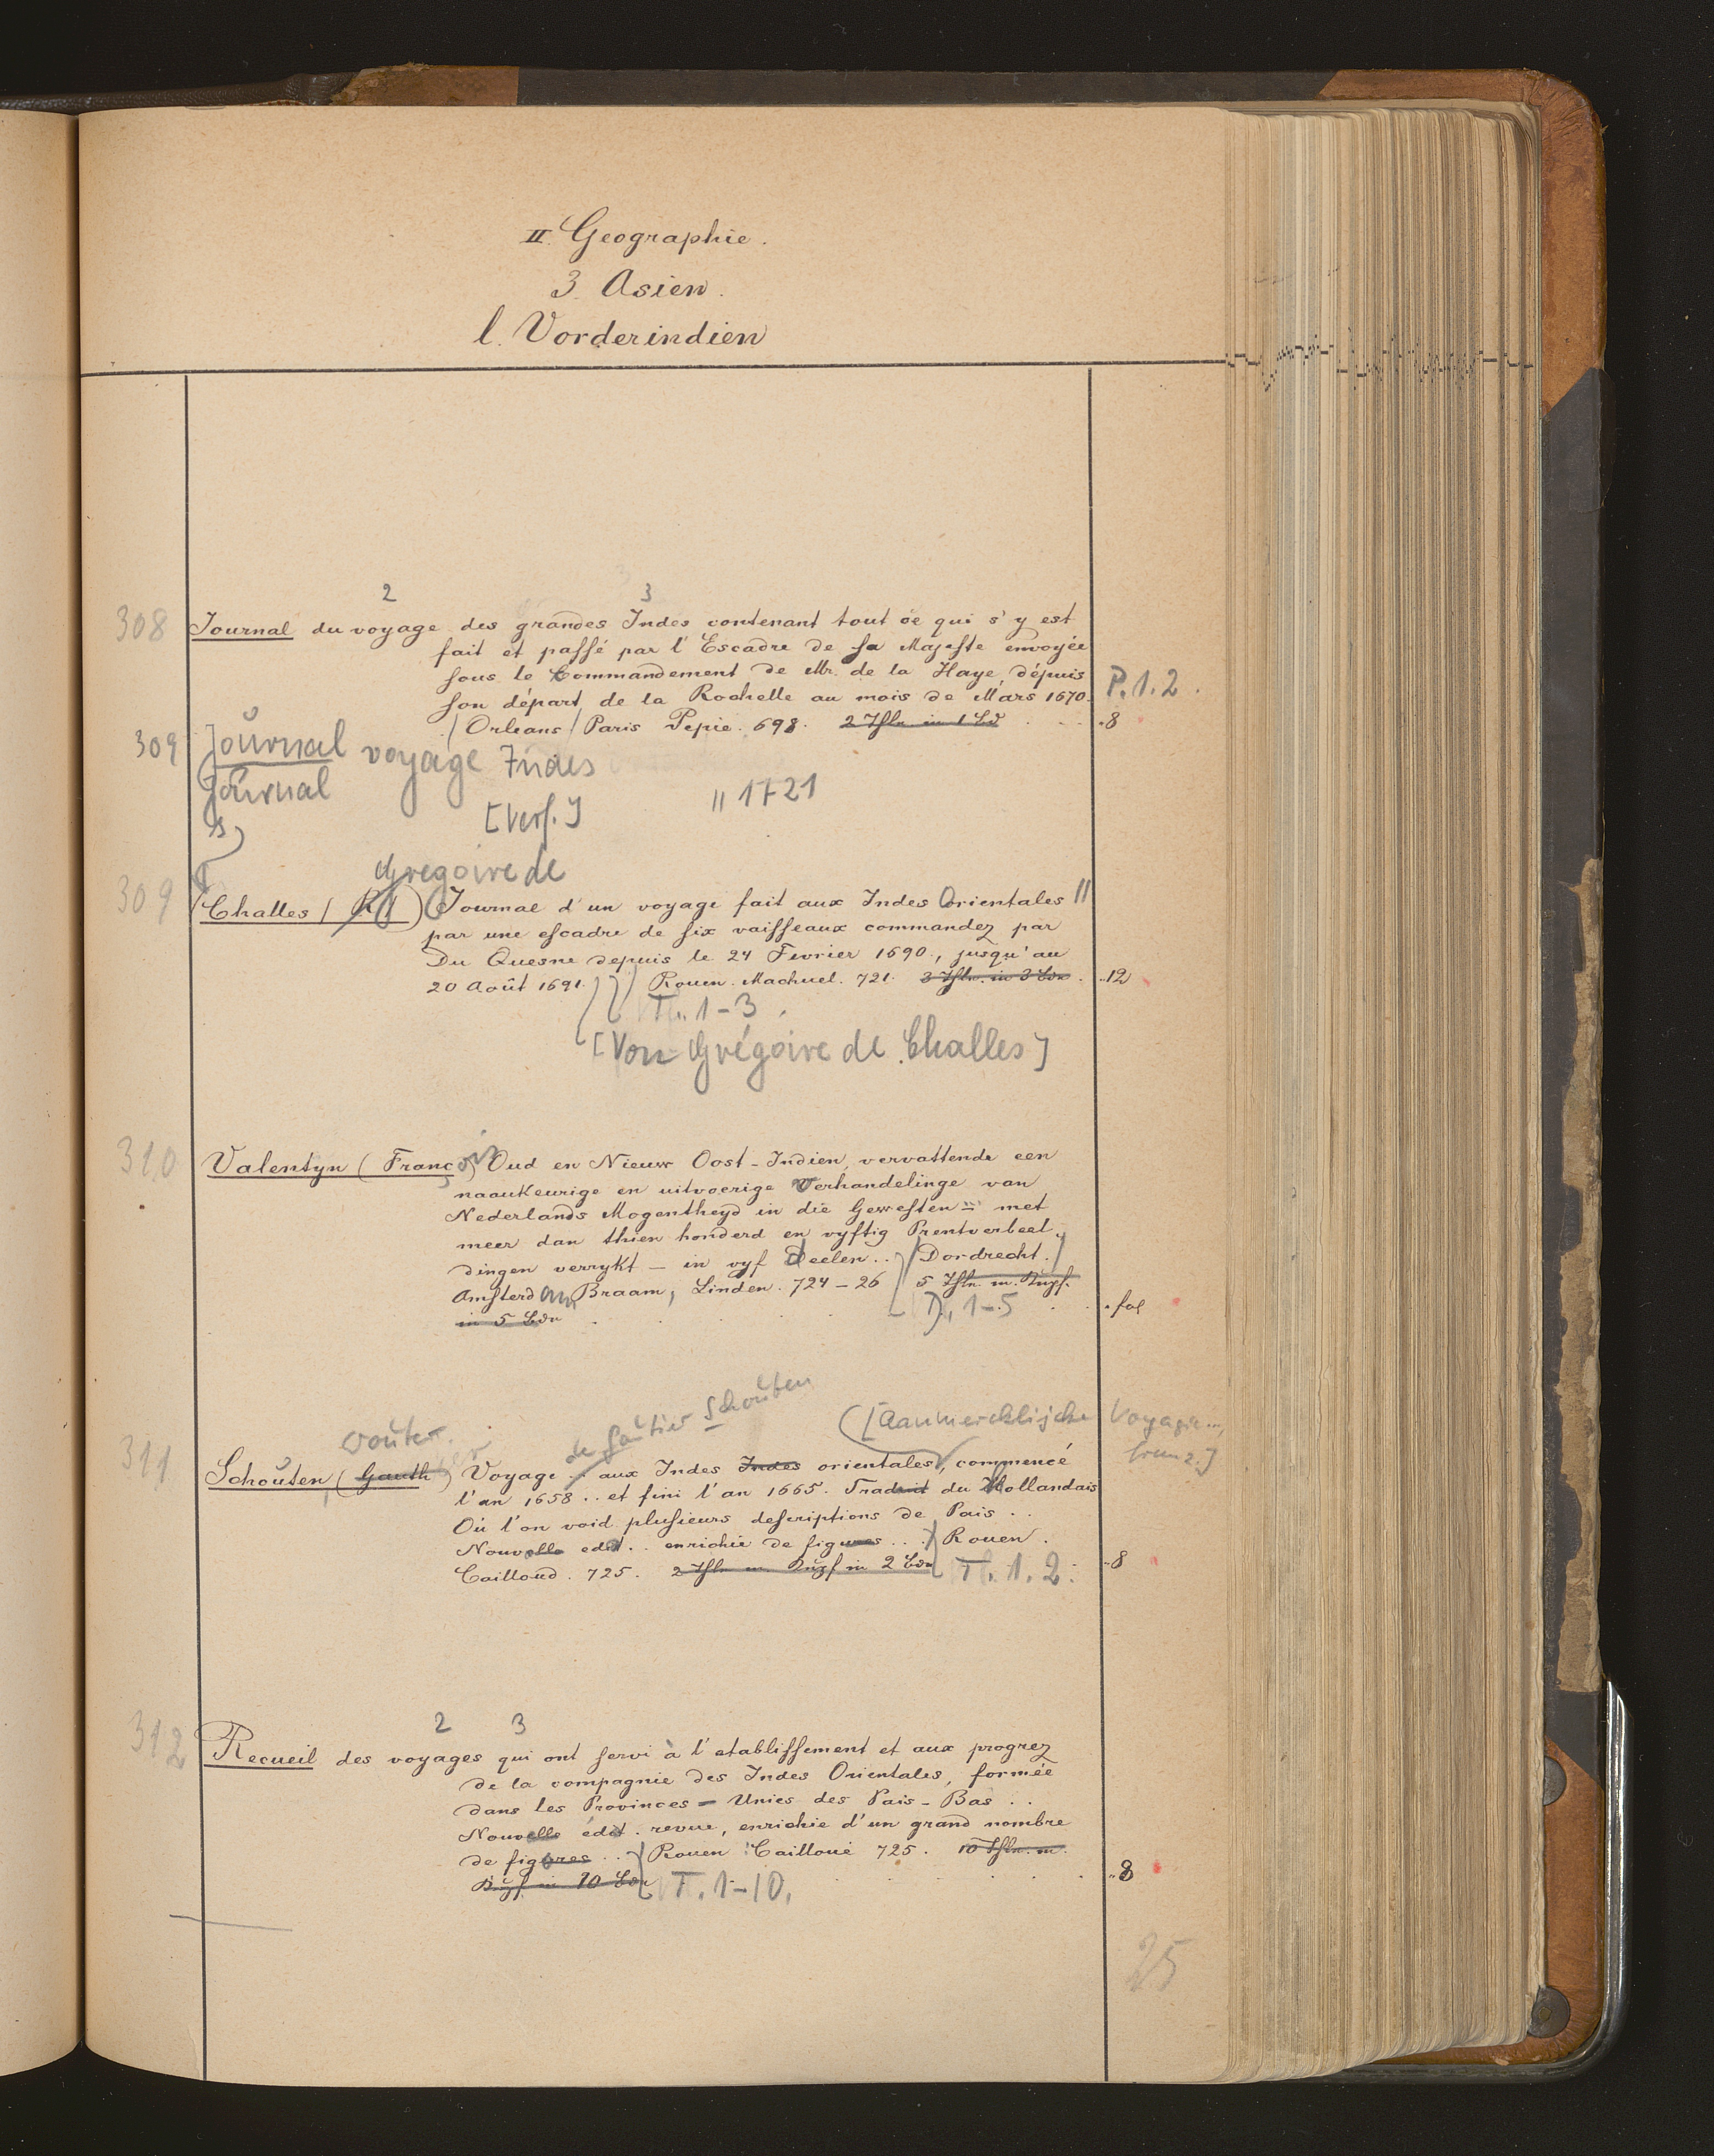 II. Geographie.
3. Asien.
l. Vorderindien
2 3
308 Journal du voyage des grandes Indes contenant tout ce qui s'y est
fait et passé par l'Escadre de sa Majeste envoyée
sous le Commandement de Mr. de la Haye, dépuis
son départ de la Rochelle au mois de Mars 1670. P. 1. 2.
(Orleans) Paris Pepie. 698. 2 Thle. in 1 Bd . . . 8
309 Journal voyage Indes
Journal
[Verf.] " 1721
Gregoire de
309 (Challes / R ) Journal d'un voyage fait aux Indes Orientales "
par une escadre de six vaisseaux commandez par
Du Quesne depuis le 24 Fevrier 1690., jusqu'au
20 Août 1691. Rouen. Machuel. 721. 3 Thle. in 3 Bdn. 12
T. 1-3.
[Von Grégoire de Challes]
310 Valentyn (François) Oud en Nieuw Oost-Indien, vervattende een
naaukeurige en uitvoerige Verhandelinge van
Nederlands Mogentheyd in die Gewesten = met
meer dan thien honderd en vyftig Prentverbeel-
dingen verrykt - in vyf deelen.. (Dordrecht.)
Amsterdam Braam, Linden. 724-26 5 Thle. m. Kupf.
in 5 Bdn . . . D. 1-5 . . fol
de Gautier Schouten
Wouter. ([Aanmercklijcke Voyagie...,
franz.]
311 Schouten, (Gauth ) Voyage .. aux Indes Indes orientales, commencé
l'an 1658 .. et fini l'an 1665. Traduit du Hollandais
Où l'on void plusieurs descriptions de Pais ..
Nouvelle edit .. enrichie de figures ... Rouen.
Cailloud. 725. 2 Thle m. Kupf in 2 Bdn T. 1. 2. 8
2 3
312 Recueil des voyages qui ont servi à l'etablissement et aux progrez
de la compagnie des Indes Orientales, formée
dans les Provinces = Unies des Pais-Bas ..
Nouvelle édit. revue, enrichie d'un grand nombre
de figures .. Rouen Cailloué 725. 10 Thle. m.
Kupf in 10 Bdn T. 1-10. . . . 8
25